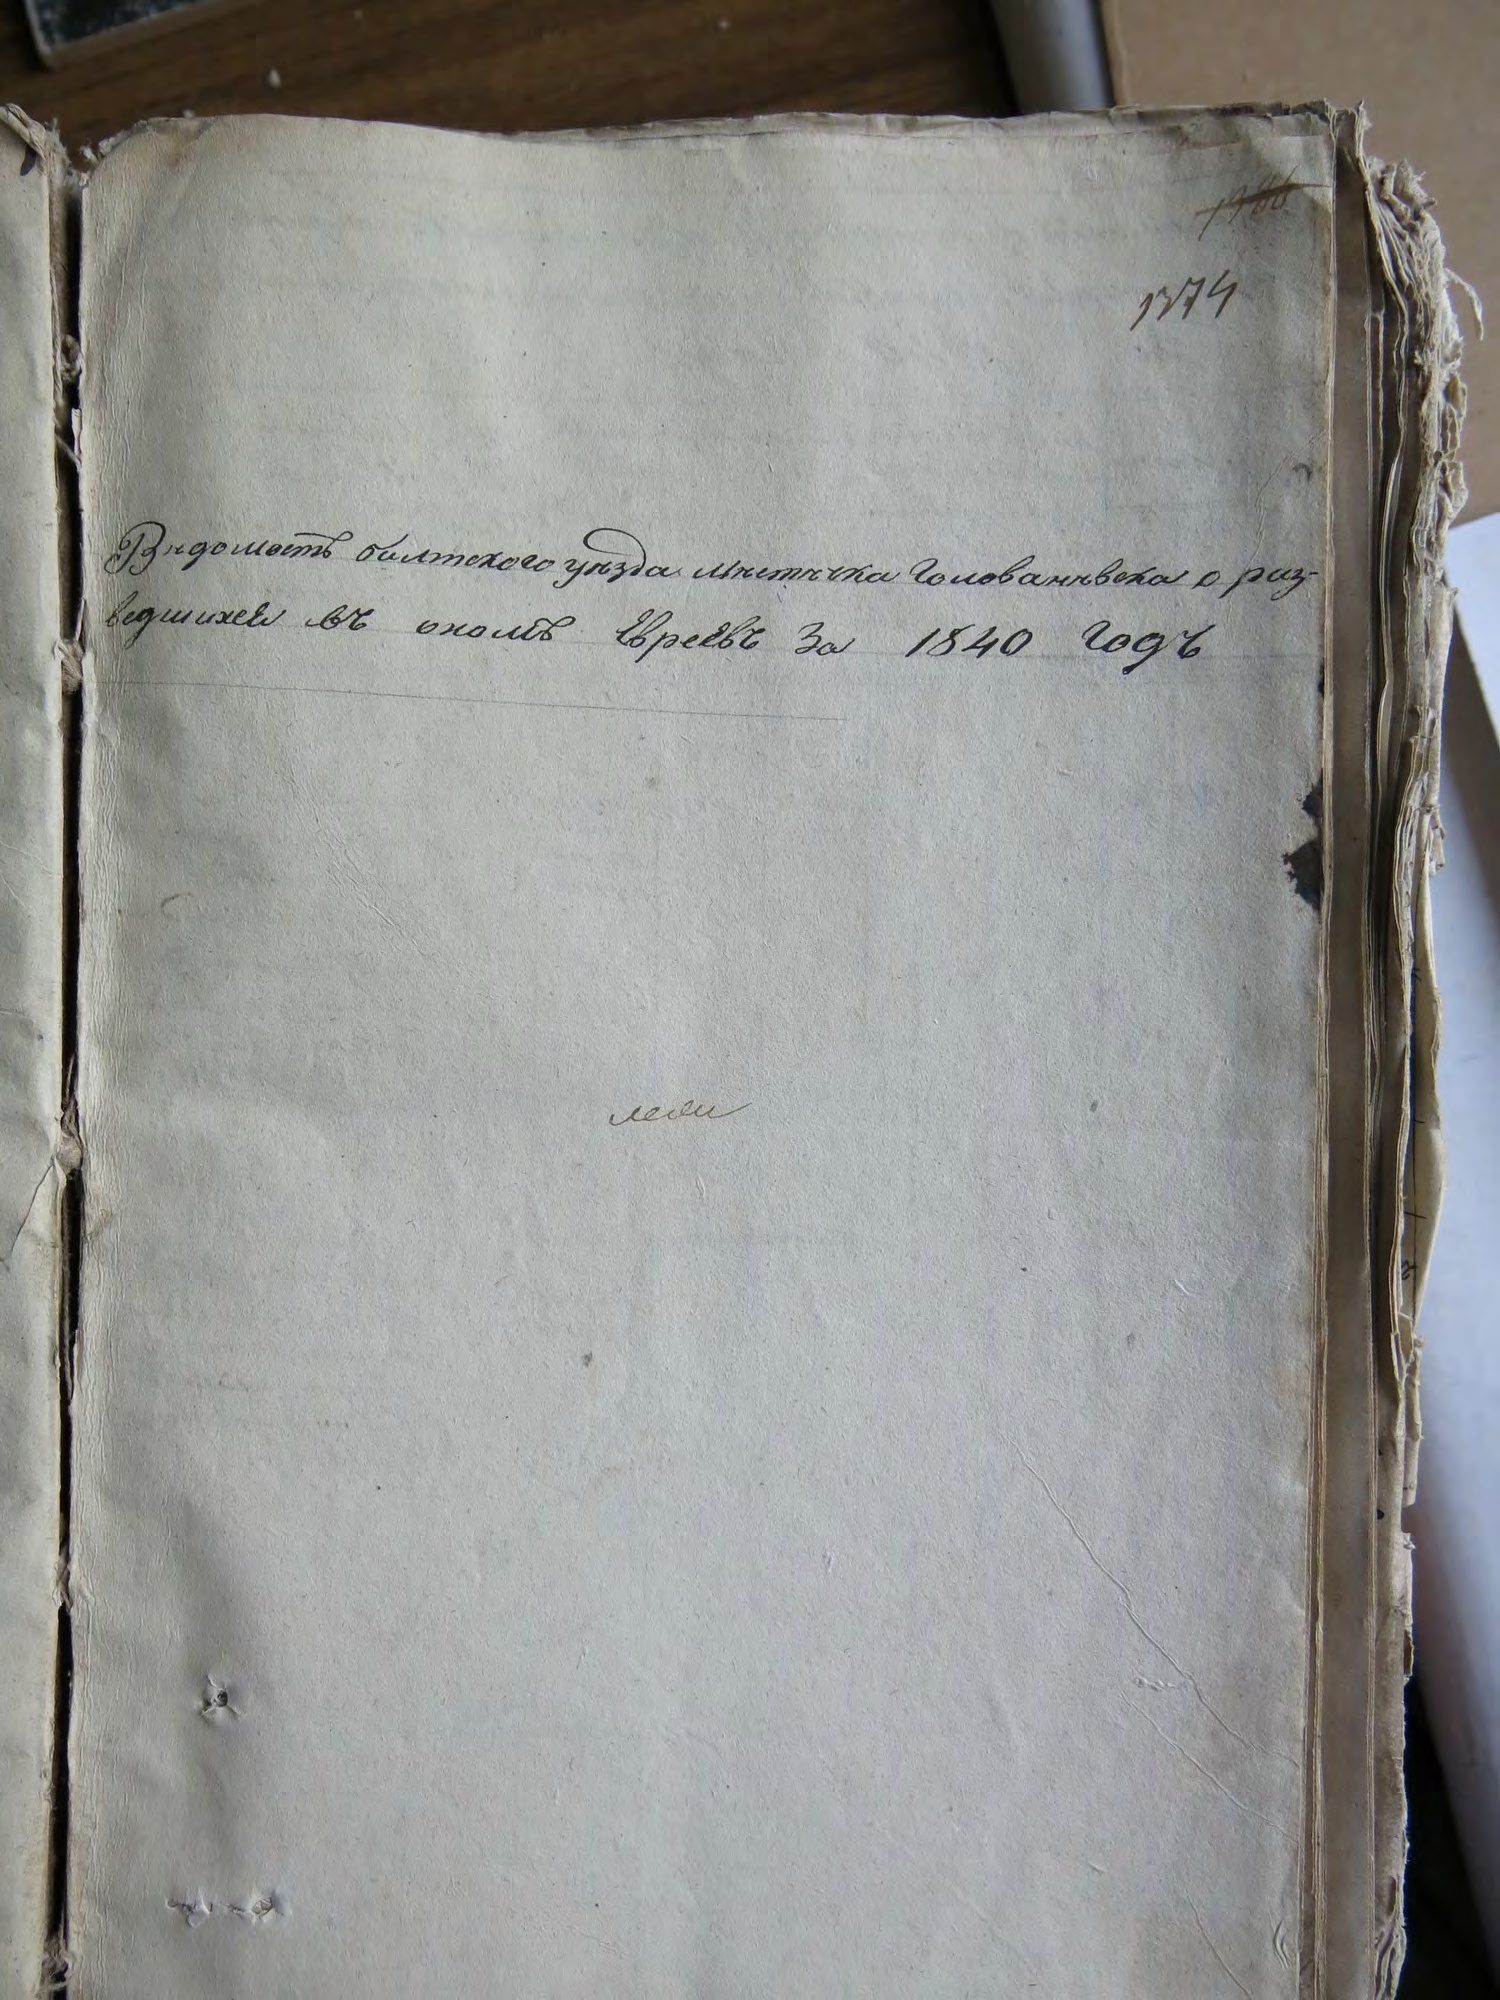 1374
Вѣдомость балтского уѣзда мѣстѣчка Голованѣвска о раз-
ведшихся въ ономъ Евреевъ За 1840 Годъ